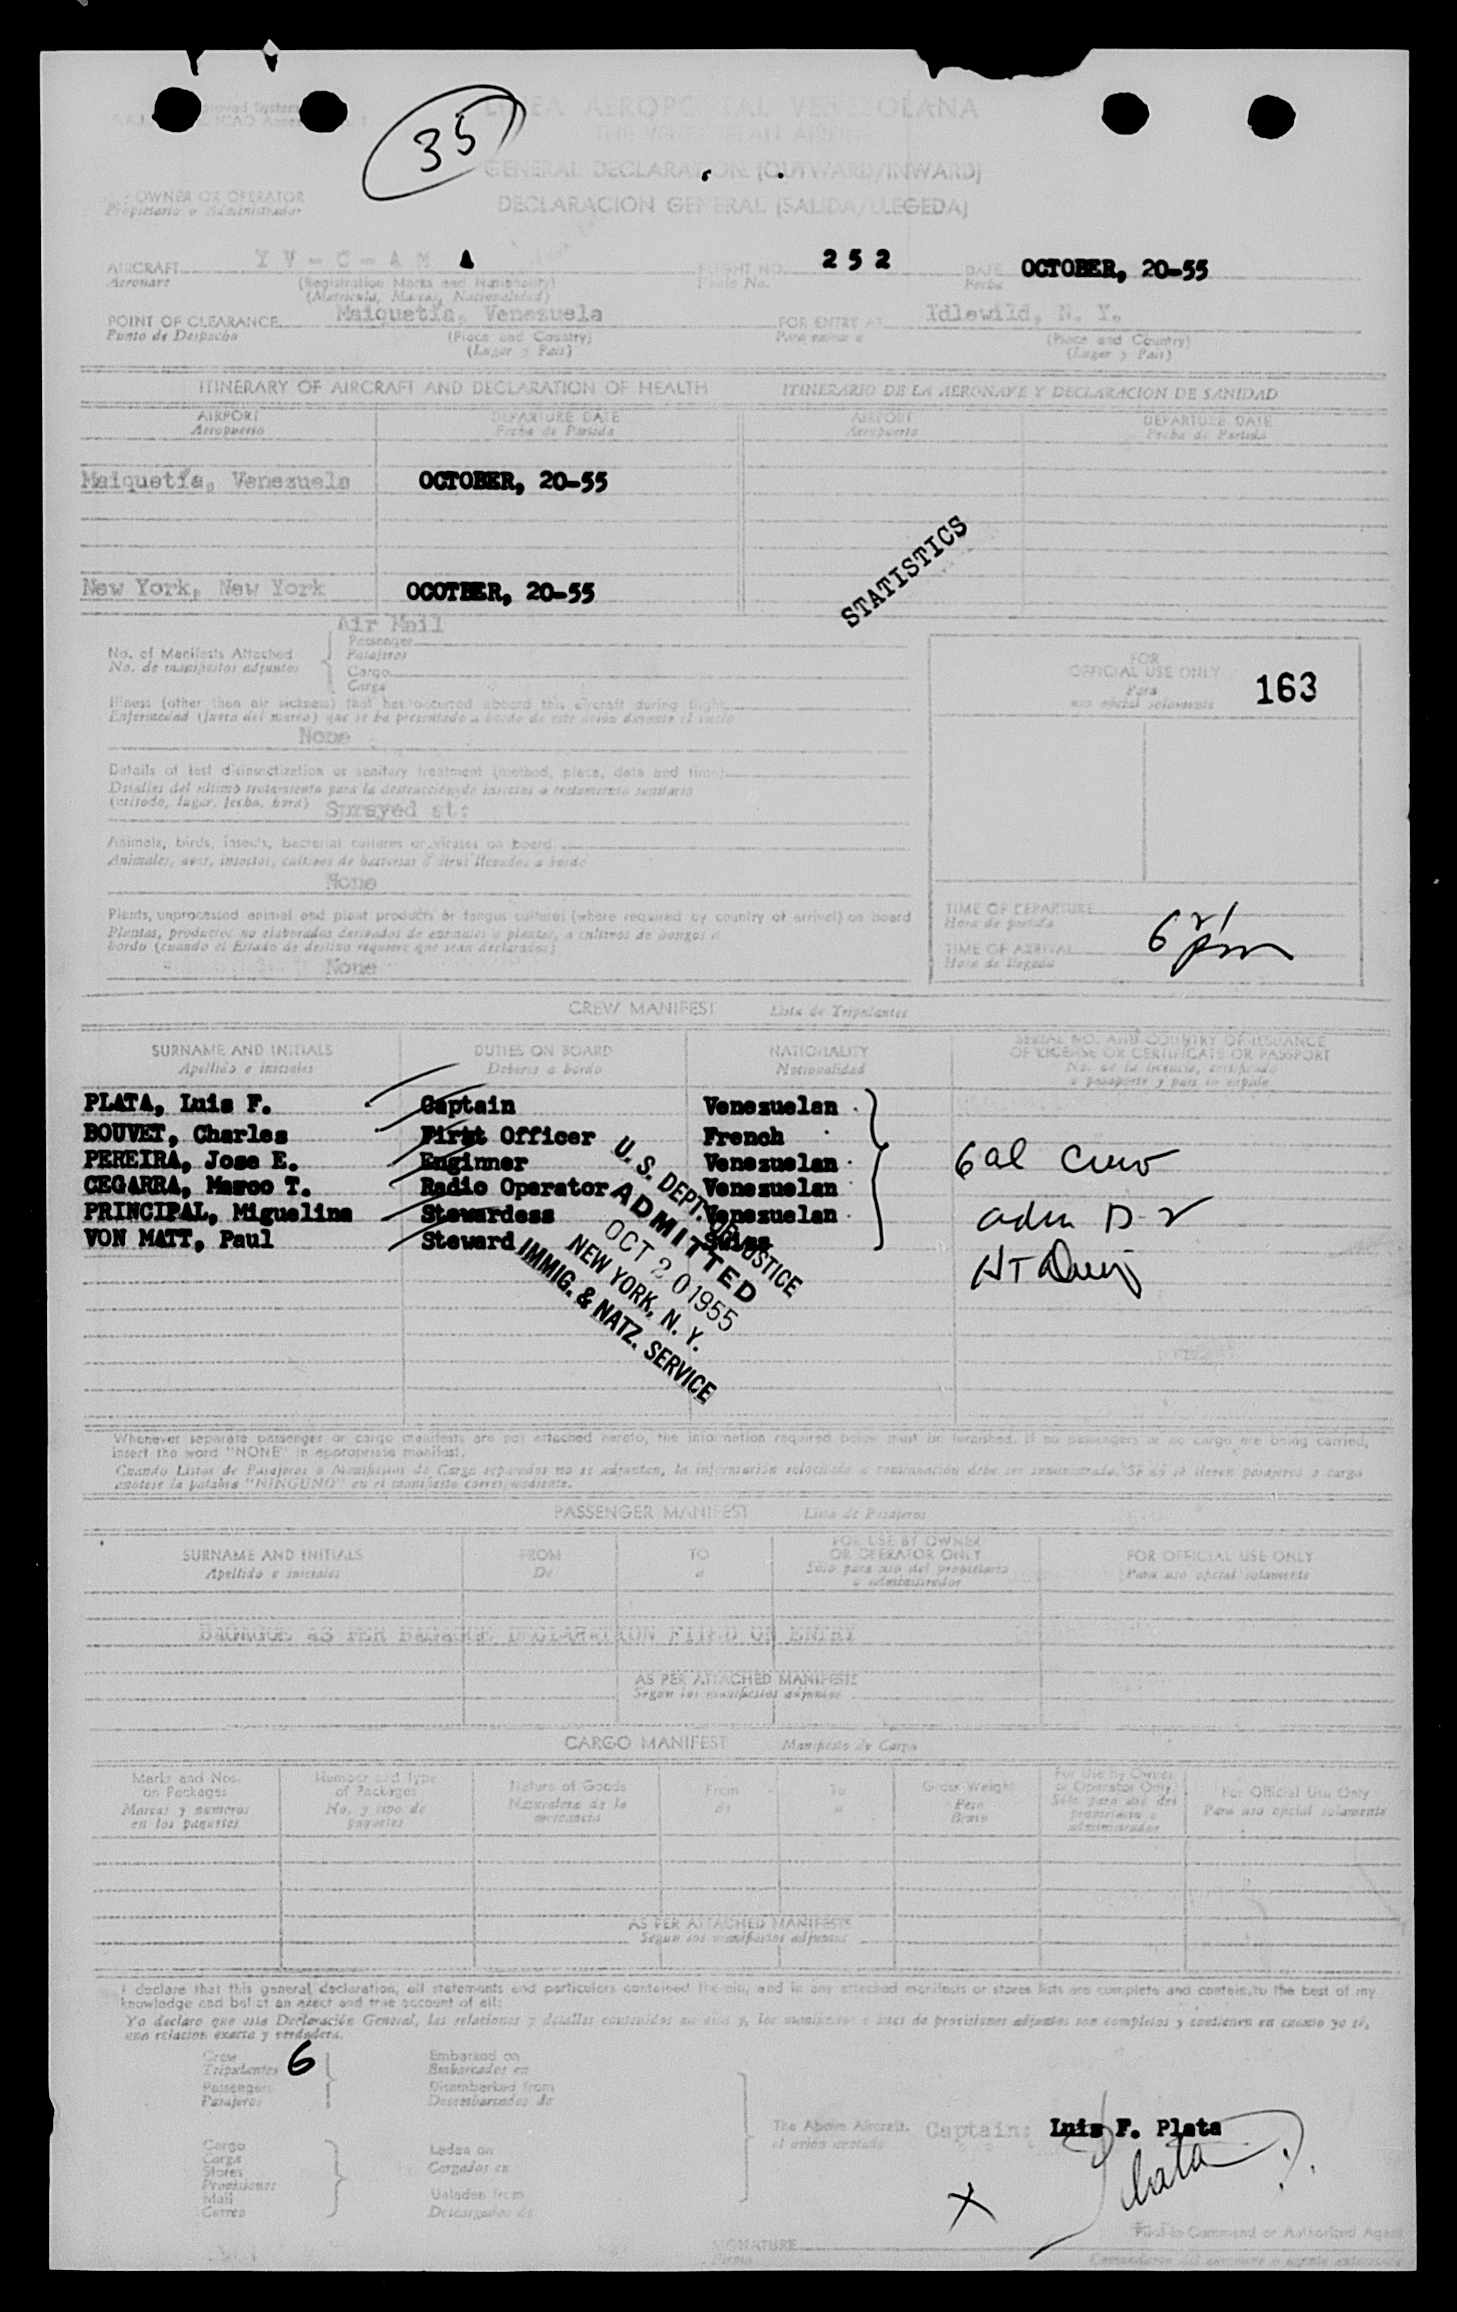 35
LINEA AEROPOSTAL VENEZOLANA
GENERAL DECLARATION (OUTWARD/INWARD)
DECLARACION GENERAL (SALIDA/LLEGEDA)
OWNER OR OPERATOR
Propietario o Administrador
AIRCRAFT Y V - C - A M A FLIGHT NO. 2 5 2 DATE OCTOBER, 20-55
Aeronave (Registration Marks and Nationality) Vuelo No. Fecha
(Matricula, Marcas, Nacionalidad)
POINT OF CLEARANCE Maiquetía, Venezuela FOR ENTRY AT Idlewild, N. Y.
Punto de Despacho (Place and Country) Para entrar a (Place and Country)
(Lugar y Pais) (Lugar y Pais)
ITINERARY OF AIRCRAFT AND DECLARATION OF HEALTH ITINERARIO DE LA AERONAVE Y DECLARACION DE SANIDAD
AIRPORT DEPARTURE DATE AIRPORT DEPARTURE DATE
Aeropuerto Fecha de Partida Aeropuerto Fecha de Partida
Maiquetía, Venezuela OCTOBER, 20-55
STATISTICS
New York, New York OCOTBER, 20-55
Air Mail
No. of Manifests Attached Passenger
No. de manifiestos adjuntos Pasajeros
Cargo
Carga
FOR
OFFICIAL USE ONLY 163
Para
uso oficial solamente
Illness (other than air sickness) that has occurred aboard this aircraft during flight
Enfermedad (fuera del mareo) que se ha presentado a bordo de este avión durante el vuelo
None
Details of last disinsectization or sanitary treatment (method, place, date and time)
Detalles del ultimo tratamiento para la destrucción de insectos o tratamiento sanitario
(método, lugar, fecha, hora) Sprayed at:
Animals, birds, insects, bacterial cultures or viruses on board
Animales, aves, insectos, cultivos de bacterias o virus llevados a bordo
None
Plants, unprocessed animal and plant products or fungus cultures (where required by country of arrival) on board
Plantas, productos no elaborados derivados de animales o plantas, o cultivos de hongos a
bordo (cuando el Estado de destino requiere que sean declarados)
None
TIME OF DEPARTURE
Hora de partida
TIME OF ARRIVAL 6 21 pm
Hora de llegada
CREW MANIFEST Lista de Tripulantes
SURNAME AND INITIALS DUTIES ON BOARD NATIONALITY SERIAL NO. AND COUNTRY OF ISSUANCE
Apellido e iniciales Deberes a bordo Nacionalidad OF LICENSE OR CERTIFICATE OR PASSPORT
PLATA, Luis F. Captain Venezuelan
BOUVET, Charles First Officer French
PEREIRA, Jose E. Enginner Venezuelan
CEGARRA, Marco T. Radio Operator Venezuelan
PRINCIPAL, Miguelina Stewardess Venezuelan
VON MATT, Paul Steward Swiss
6 al Crew
adm D-2
U. S. DEPT. OF JUSTICE
ADMITTED
OCT 20 1955
NEW YORK, N. Y.
IMMIG. & NATZ. SERVICE
Whenever separate passenger or cargo manifests are not attached hereto, the information required below must be furnished. If no passengers or no cargo are being carried,
insert the word "NONE" in appropriate manifest.
Cuando Listas de Pasajeros o Manifiestos de Carga separados no se adjuntan, la información solicitada a continuación debe ser suministrada. Si no se llevan pasajeros o carga
anótese la palabra "NINGUNO" en el manifiesto correspondiente.
PASSENGER MANIFEST Lista de Pasajeros
SURNAME AND INITIALS FROM TO FOR USE BY OWNER OR OPERATOR ONLY FOR OFFICIAL USE ONLY
Apellido e iniciales De a Sólo para uso del propietario o administrador Para uso oficial solamente
BAGGAGE AS PER BAGGAGE DECLARATION FILED ON ENTRY
AS PER ATTACHED MANIFESTS
Segun los manifiestos adjuntos
CARGO MANIFEST Manifiesto de Carga
Marks and Nos. on Packages Number and Type of Packages Nature of Goods From To Gross Weight For Use by Owner or Operator Only For Official Use Only
Marcas y numeros en los paquetes No. y tipo de paquetes Naturaleza de la mercancia de a Peso Bruto Sólo para uso del propietario o administrador Para uso oficial solamente
AS PER ATTACHED MANIFESTS
Segun los manifiestos adjuntos
I declare that this general declaration, all statements and particulars contained therein, and in any attached manifests or stores lists are complete and contain, to the best of my
knowledge and belief an exact and true account of all:
Yo declaro que esta Declaración General, las relaciones y detalles contenidos en ella y, los manifiestos o listas de provisiones adjuntos son completos y contienen en cuanto yo sé,
una relacion exacta y verdadera.
Crew 6 Embarked on
Tripulantes Embarcados en
Passengers Disembarked from
Pasajeros Desembarcados de
The Above Aircraft. Captain: Luis F. Plata
el avion anotado
Cargo Laden on
Carga Cargados en
Stores
Provisiones Unladen from
Mail Descargados de
Correo
X Plata
Pilot in Command or Authorized Agent
SIGNATURE
Firma